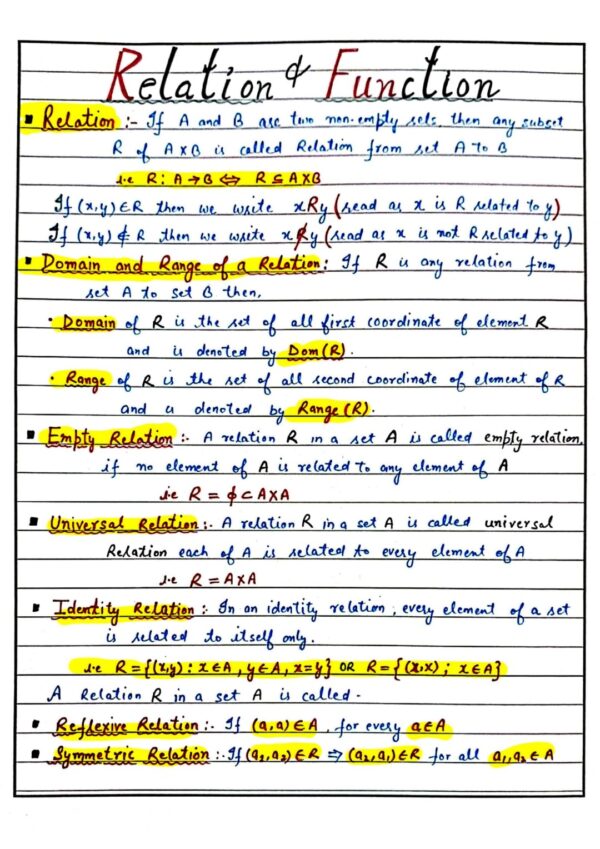 Relation & Function
▪ Relation :- If A and B are two non-empty sets, then any subset
R of A×B is called Relation from set A to B
i.e R: A→B ⇔ R ⊆ A×B
If (x,y) ∈ R then we write xRy (read as x is R related to y)
If (x,y) ∉ R then we write xR̸y (read as x is not R related to y)
▪ Domain and Range of a Relation: If R is any relation from
set A to set B then,
• Domain of R is the set of all first coordinate of element R
and is denoted by Dom(R).
• Range of R is the set of all second coordinate of element of R
and is denoted by Range(R).
▪ Empty Relation :- A relation R in a set A is called empty relation,
if no element of A is related to any element of A
i.e R = ϕ ⊂ A×A
▪ Universal Relation :- A relation R in a set A is called universal
Relation each of A is related to every element of A
i.e R = A×A
▪ Identity Relation :- In an identity relation, every element of a set
is related to itself only.
i.e R = {(x,y) : x∈A, y∈A, x=y} OR R = {(x,x) ; x∈A}
A Relation R in a set A is called -
▪ Reflexive Relation :- If (a,a) ∈ A, for every a∈A
▪ Symmetric Relation :- If (a₁,a₂) ∈ R ⇒ (a₂,a₁) ∈ R for all a₁,a₂ ∈ A